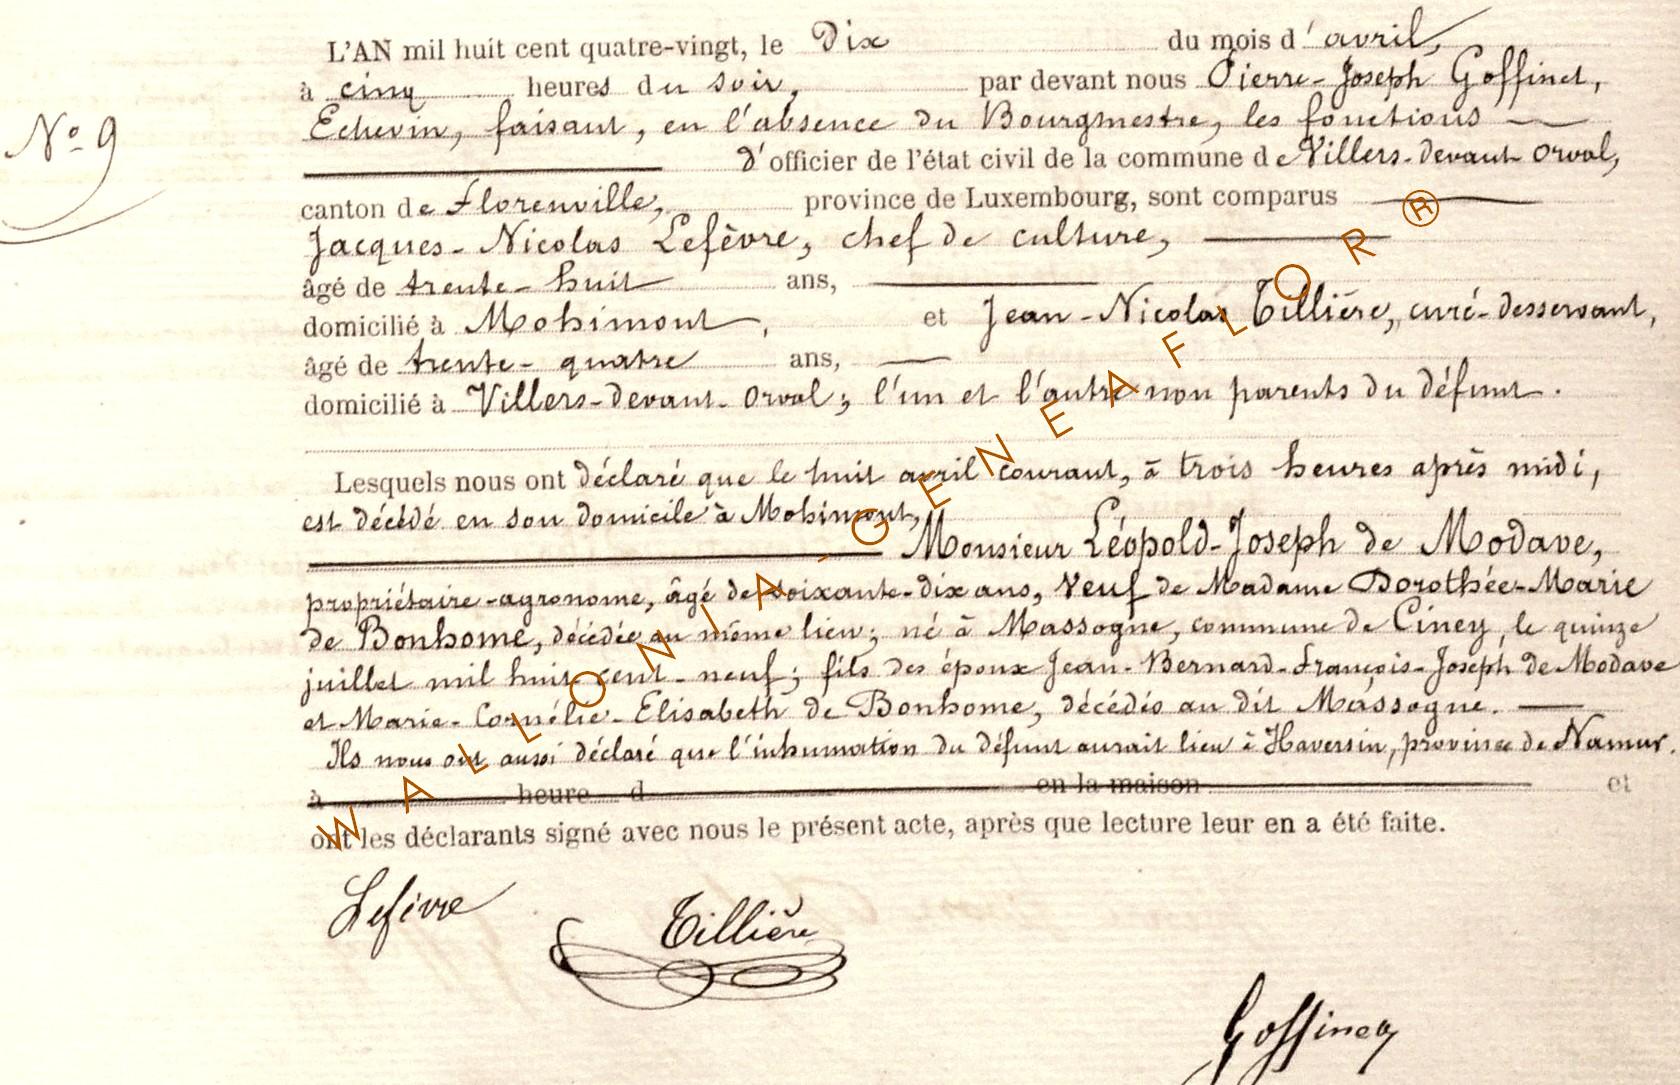 L'AN mil huit cent quatre-vingt, le Dix du mois d'avril,
à cinq heures du soir, par devant nous Pierre-Joseph Goffinet,
Nº 9
Echevin, faisant, en l'absence du Bourgmestre, les fonctions
d'officier de l'état civil de la commune de Villers-devant Orval,
canton de Florenville, province de Luxembourg, sont comparus
Jacques-Nicolas Lefèvre, chef de culture,
âgé de trente-huit ans,
domicilié à Mohimont, et Jean-Nicolas Tillière, curé-desservant,
âgé de trente-quatre ans,
domicilié à Villers-devant-Orval; l'un et l'autre non parents du défunt.
Lesquels nous ont déclaré que le huit avril courant, à trois heures après midi,
est décédé en son domicile à Mohimont,
Monsieur Léopold-Joseph de Modave,
propriétaire-agronome, âgé de soixante-dix ans, Veuf de Madame Dorothée-Marie
de Bonhome, décédée au même lieu; né à Massogne, commune de Ciney, le quinze
juillet mil huit cent-neuf; fils des époux Jean-Bernard-François-Joseph de Modave
et Marie-Cornélie-Elisabeth de Bonhome, décédés au dit Massogne.
Ils nous ont aussi déclaré que l'inhumation du défunt aurait lieu à Haversin, province de Namur.
à heure d en la maison et
ont les déclarants signé avec nous le présent acte, après que lecture leur en a été faite.
Lefèvre
Tillière
Goffinet
WALLONIA-GENEAFLOR®